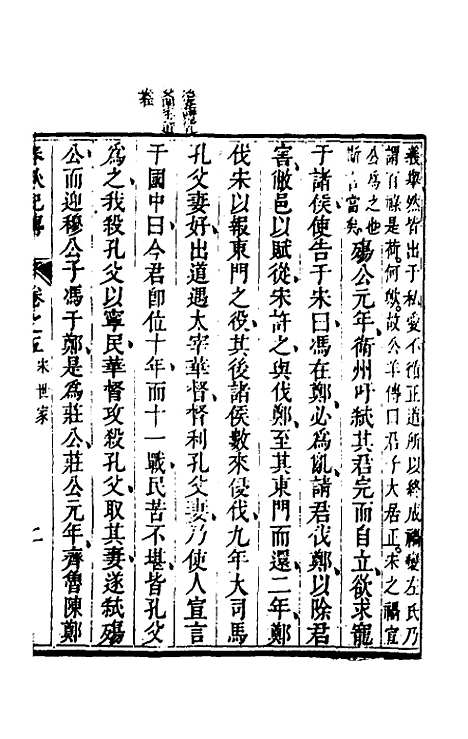 義舉然皆出于私愛不循正道所以終成禍變左氏乃
謂百祿是荷何歟故公羊傳曰君子大居正宋之禍宣
公爲之也
斯言當矣殤公元年衛州吁弑其君完而自立欲求寵
于諸侯使告于宋曰馮在鄭必爲亂請君伐鄭以除君
害敝邑以賦從宋許之與伐鄭至其東門而還二年鄭
伐宋以報東門之役其後諸侯數來侵伐九年大司馬
孔父妻好出道遇太宰華督督利孔父妻乃使人宣言
于國中曰今君卽位十年而十一戰民苦不堪皆孔父
爲之我殺孔父以寧民華督攻殺孔父取其妻遂弑殤
公而迎穆公子馮于鄭是爲莊公莊公元年齊魯陳鄭
春秋紀傳
卷之五
宋世家